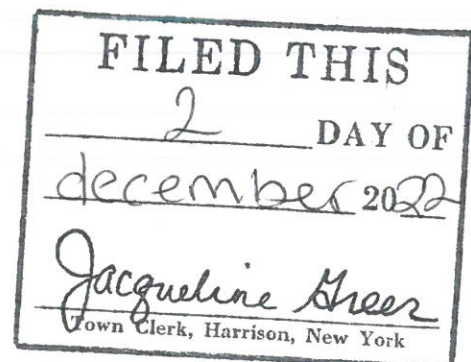 FILED THIS
2 DAY OF
december 2022
Jacqueline Greer
Town Clerk, Harrison, New York